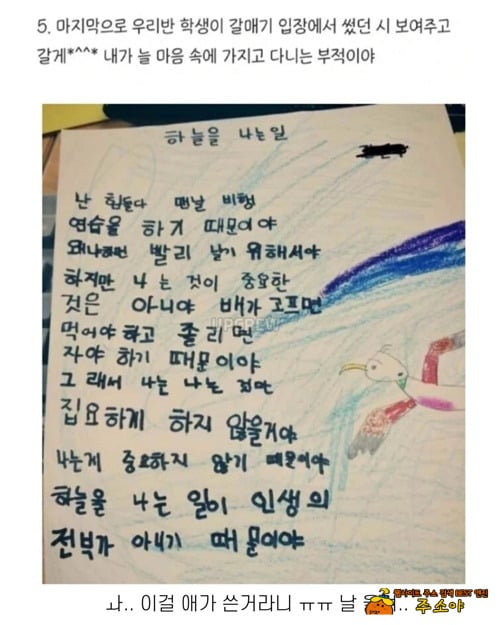 5. 마지막으로 우리반 학생이 갈매기 입장에서 썼던 시 보여주고
갈게*^^* 내가 늘 마음 속에 가지고 다니는 부적이야
하늘을 나는일
난 힘들다 맨날 비행
연습을 하기 때문이야
왜냐하면 빨리 날기 위해서야
하지만 나 는 것이 중요한
것은 아니야 배가 고프면
먹어야 하고 졸리면
자야 하기 때문이야
그래서 나는 나는 것만
집요하게 하지 않을거야
나는게 중요하지 않기 때문이야
하늘을 나는 일이 인생의
전부가 아니기 때문이야
UPGREW
이걸 애가 쓴거라니 ㅠㅠ 날
웹사이트 주소 검색 BEST 랭킹
주소야